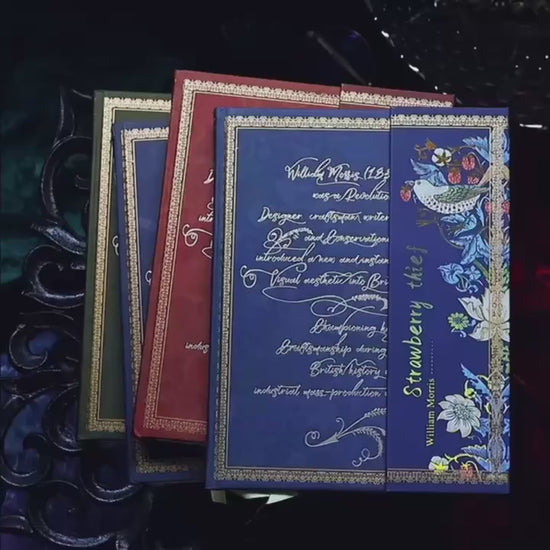 William Morris (18
was a Revolution
Designer craftsman writer
and Conservation
introduced a new and instan
Visual aesthetic into Bri
Championing h
Craftsmanship during
British history
industrial mass-production
Strawberry thief
William Morris
indus